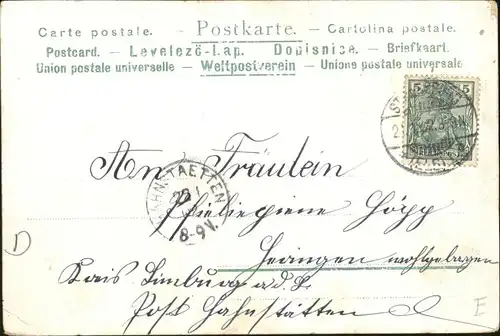 Carte postale. - Postkarte. - Cartolina postale.
Postcard. - Levelezö-Lap. Dopisnice. - Briefkaart.
Union postale universelle - Weltpostverein - Unione postale universale
5 5
An Fräulein
HNSTAETTEN
8-9V.
Höpp
wohlgelagen
Kais Limburg a.d.L.
Post Hahnstätten
D
E